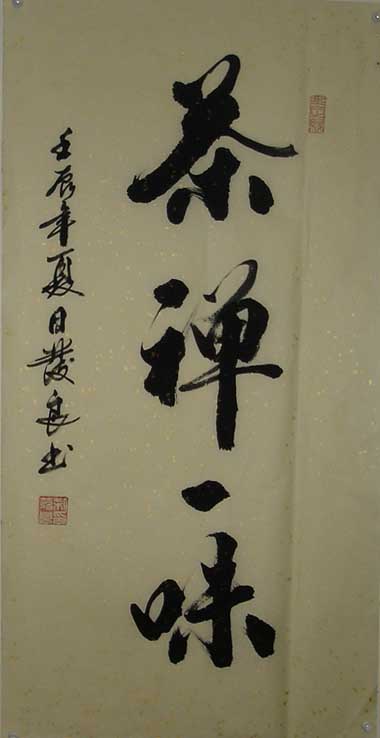 茶禅一味
壬辰年夏日发良书